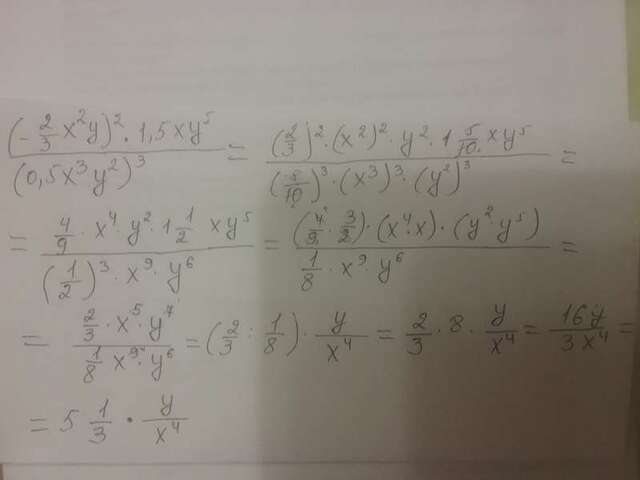 (-2/3 x²y)² · 1,5xy⁵ / (0,5x³y²)³ = (2/3)² · (x²)² · y² · 1 5/10 · xy⁵ / (5/10)³ · (x³)³ · (y²)³ =
= 4/9 · x⁴ · y² · 1 1/2 xy⁵ / (1/2)³ · x⁹ · y⁶ = (4/9 · 3/2) · (x⁴·x) · (y²·y⁵) / 1/8 · x⁹ · y⁶ =
= 2/3 · x⁵ · y⁷ / 1/8 x⁹ · y⁶ = (2/3 : 1/8) · y/x⁴ = 2/3 · 8 · y/x⁴ = 16y/3x⁴ =
= 5 1/3 · y/x⁴